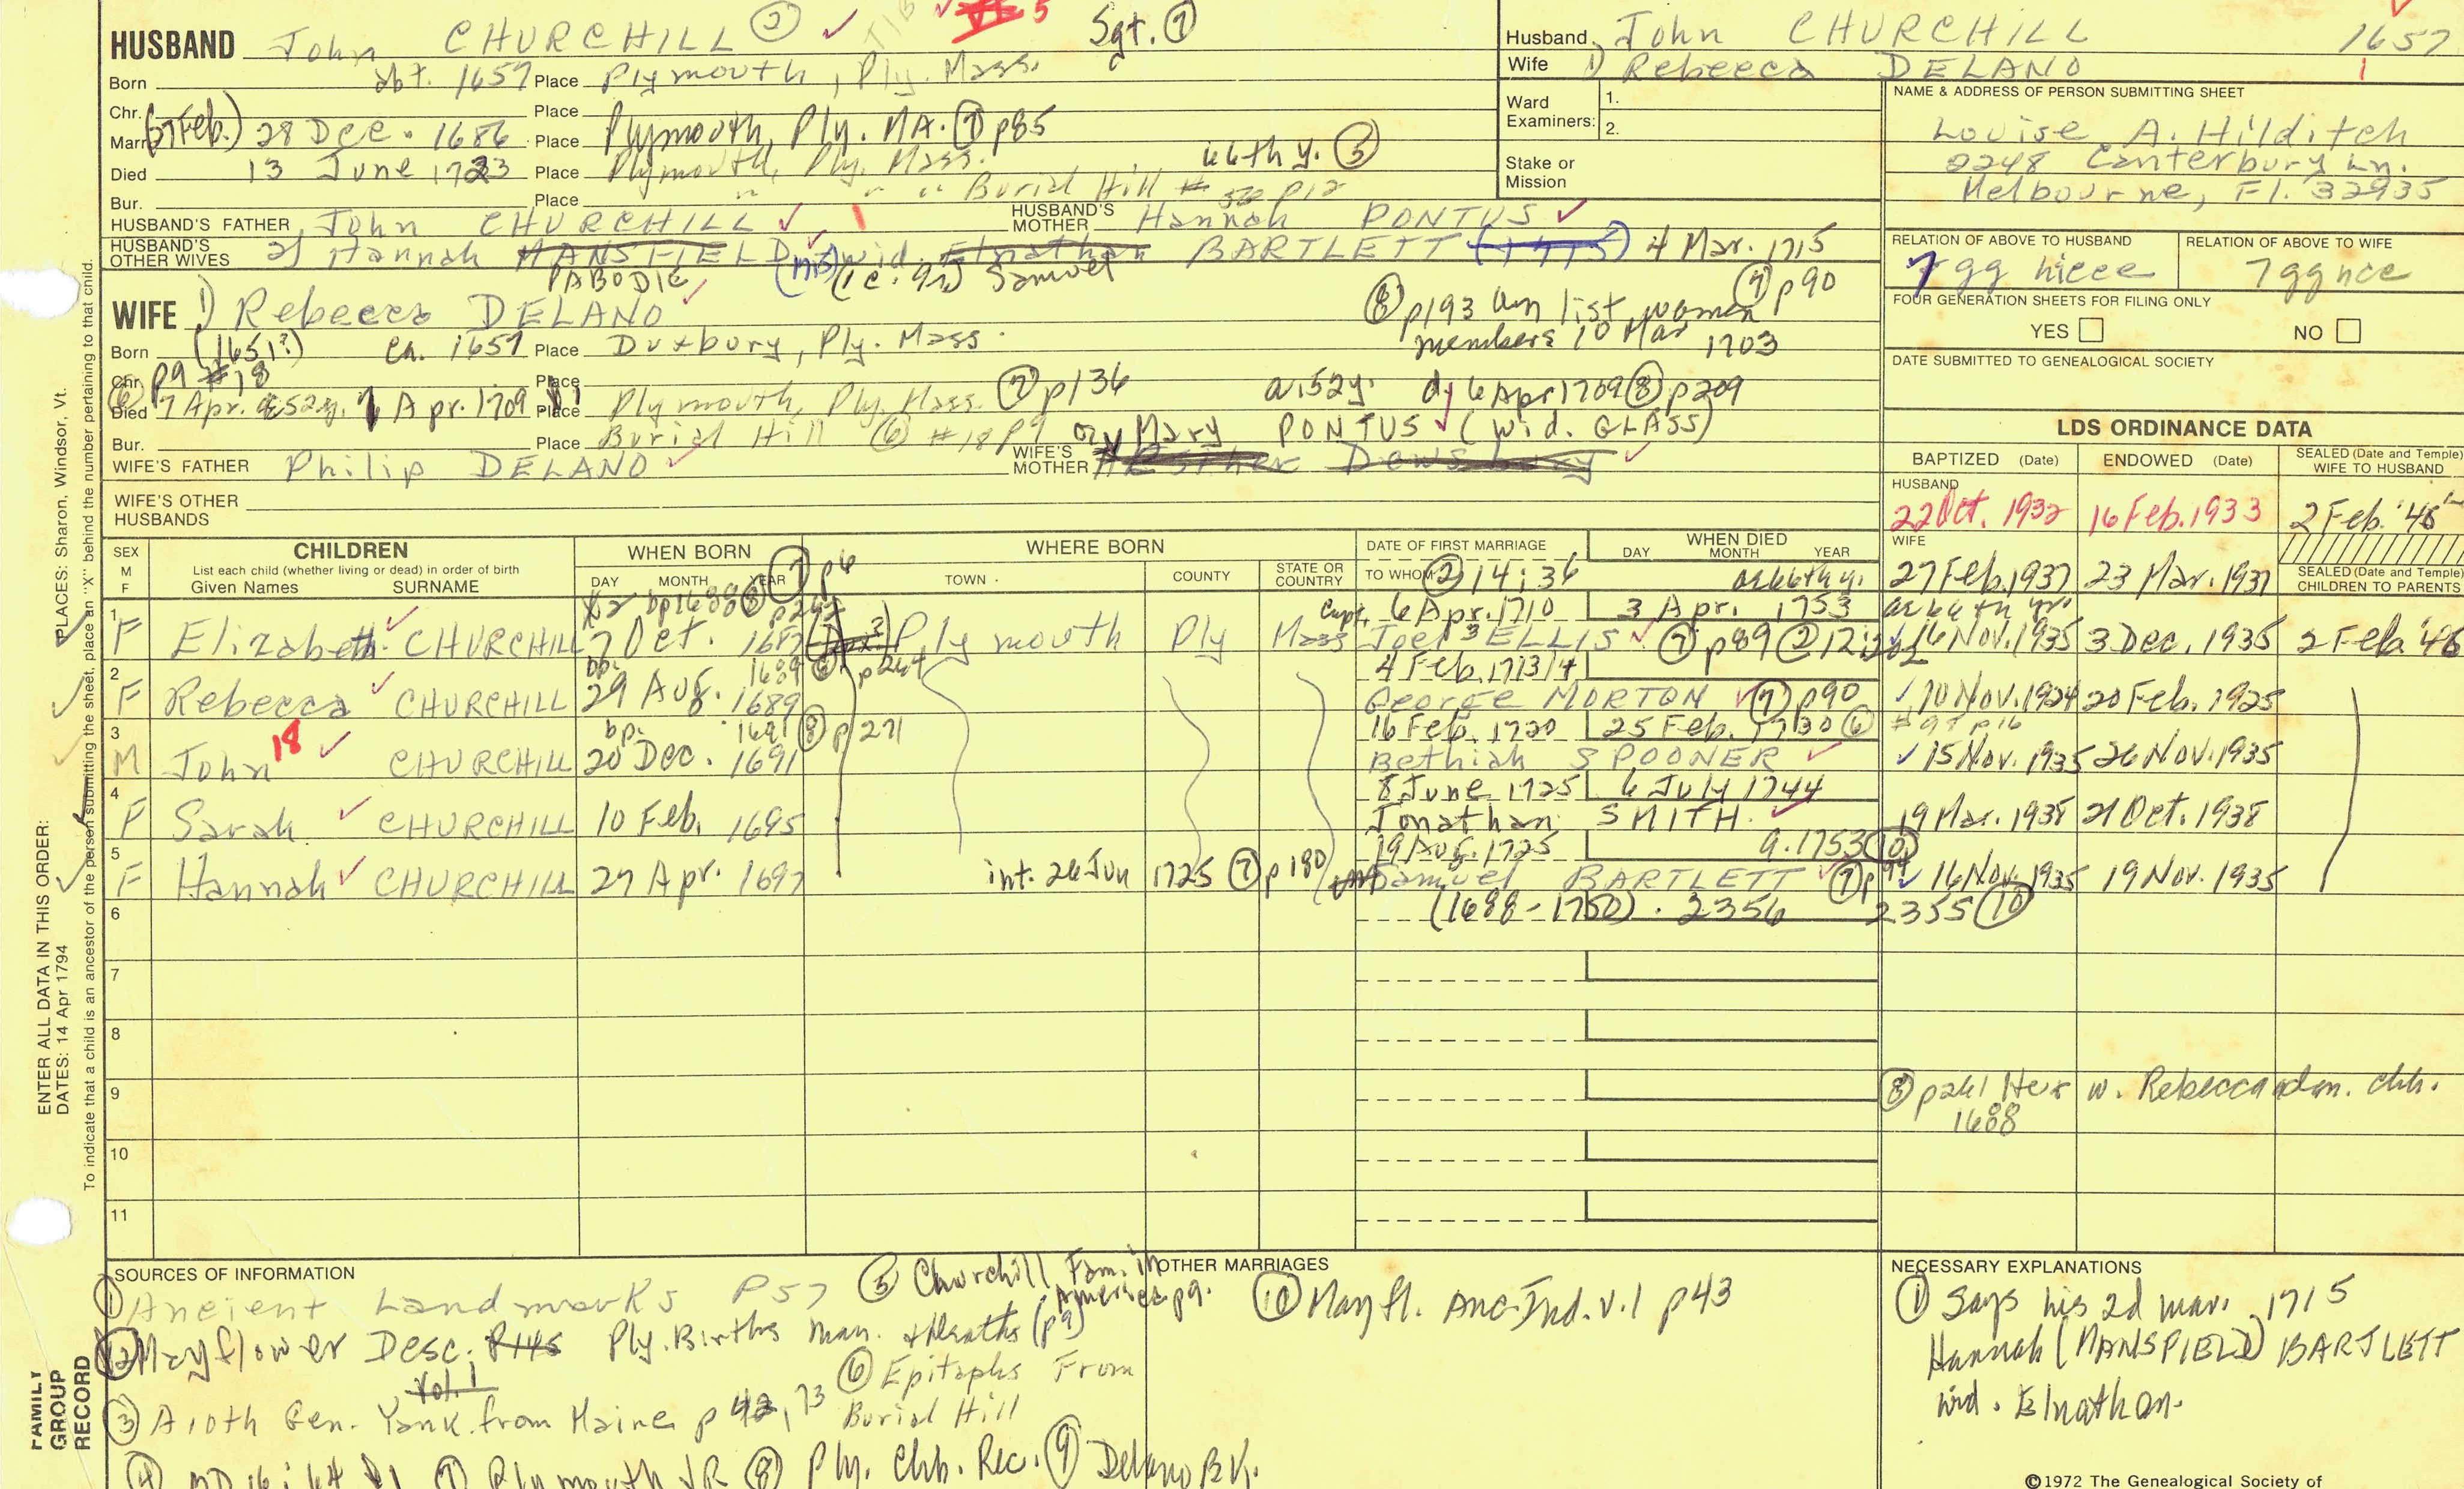 HUSBAND John CHURCHILL ② 5 Sgt. ⑦
Born abt. 1657 Place Plymouth, Ply. Mass.
Chr. Place
Marr. (27 Feb.) 28 Dec. 1686 Place Plymouth, Ply. MA. ⑦ p85
Died 13 June 1723 Place Plymouth, Ply. Mass. 66th y. ⑤
Bur. Place " " " Burial Hill # p12
HUSBAND'S FATHER John CHURCHILL 1 HUSBAND'S MOTHER Hannah PONTUS
HUSBAND'S OTHER WIVES 2) Hannah MANSFIELD wid. Elnathan BARTLETT (1715) 4 Mar. 1715
PABODIE Samuel ⑦ p90
WIFE 1) Rebecca DELANO ⑧ p193 on list women
members 10 Mar 1703
Born (1651?) ca. 1657 Place Duxbury, Ply. Mass.
Chr. p9 #18 Place
⑥ Died 7 Apr. 52y. Apr. 1709 Place Plymouth, Ply. Mass. ⑦ p136 a. 52y. d. 6 Apr 1709 ⑧ p209
Bur. Place Burial Hill ⑥ #18 p9 Mary PONTUS (wid. GLASS)
WIFE'S FATHER Philip DELANO WIFE'S MOTHER
WIFE'S OTHER HUSBANDS
Husband John CHURCHILL 1657
Wife 1) Rebecca DELANO 1
Ward Examiners: 1.
2.
Stake or Mission
NAME & ADDRESS OF PERSON SUBMITTING SHEET
Louise A. Hilditch
2248 Canterbury Ln.
Melbourne, Fl. 32935
RELATION OF ABOVE TO HUSBAND RELATION OF ABOVE TO WIFE
7 gg niece 7 gg nce
FOUR GENERATION SHEETS FOR FILING ONLY
YES NO
DATE SUBMITTED TO GENEALOGICAL SOCIETY
LDS ORDINANCE DATA
BAPTIZED (Date) ENDOWED (Date) SEALED (Date and Temple) WIFE TO HUSBAND
HUSBAND
22 Oct. 1932 16 Feb. 1933 2 Feb. '48
WIFE
27 Feb. 1937 23 Mar. 1937 SEALED (Date and Temple) CHILDREN TO PARENTS
SEX M F CHILDREN List each child (whether living or dead) in order of birth Given Names SURNAME
WHEN BORN DAY MONTH YEAR ⑦ p6
WHERE BORN TOWN COUNTY STATE OR COUNTRY
DATE OF FIRST MARRIAGE TO WHOM ② 14:36
WHEN DIED DAY MONTH YEAR
bp 1688 ⑧ Capt. 6 Apr. 1710 3 Apr. 1753
1 F Elizabeth CHURCHILL 7 Oct. 1687 Plymouth Ply Mass Joel ELLIS ⑦ p89 ② 16 Nov. 1935 3 Dec. 1935 2 Feb. '48
bp. 1689 p264 4 Feb. 1713/4
2 F Rebecca CHURCHILL 29 Aug. 1689 George MORTON ⑦ p90 10 Nov. 1924 20 Feb. 1925
bp. 1691 ⑧ p271 16 Feb. 1720 25 Feb. 1730 ⑥ p16
3 M John 18 CHURCHILL 20 Dec. 1691 Bethiah SPOONER 15 Nov. 1935 26 Nov. 1935
8 June 1725 6 July 1744
4 F Sarah CHURCHILL 10 Feb. 1695 Jonathan SMITH 19 Mar. 1938 21 Oct. 1938
19 Aug. 1725 a. 1753 ⑩
5 F Hannah CHURCHILL 27 Apr. 1697 int. 26 Jun 1725 ⑦ p180 Samuel BARTLETT ⑦ 16 Nov. 1935 19 Nov. 1935
6 (1688-1750). 2356 2355 ⑩
7
8
9 ⑧ p261 w. Rebecca adm. chh.
1688
10
11
SOURCES OF INFORMATION
① Ancient Landmarks P57
② Mayflower Desc. P145 Ply. Births Marr. & Deaths (p9)
Vol. 1
③ A 10th Gen. Yank. from Maine p 42, 73
⑤ Churchill Fam. in America p9.
⑥ Epitaphs From Burial Hill
④ MD 16:64 ⑦ Plymouth VR ⑧ Ply. Chh. Rec. ⑨ Delano BK.
OTHER MARRIAGES
⑩ Mayfl. Anc. Ind. v.1 p43
NECESSARY EXPLANATIONS
① Says his 2d marr. 1715
Hannah (MANSFIELD) BARTLETT
wid. Elnathan.
©1972 The Genealogical Society of
ENTER ALL DATA IN THIS ORDER:
PLACES: Sharon, Windsor, Vt.
DATES: 14 Apr 1794
To indicate that a child is an ancestor of the person submitting the sheet, place an "X" behind the number pertaining to that child.
FAMILY GROUP RECORD